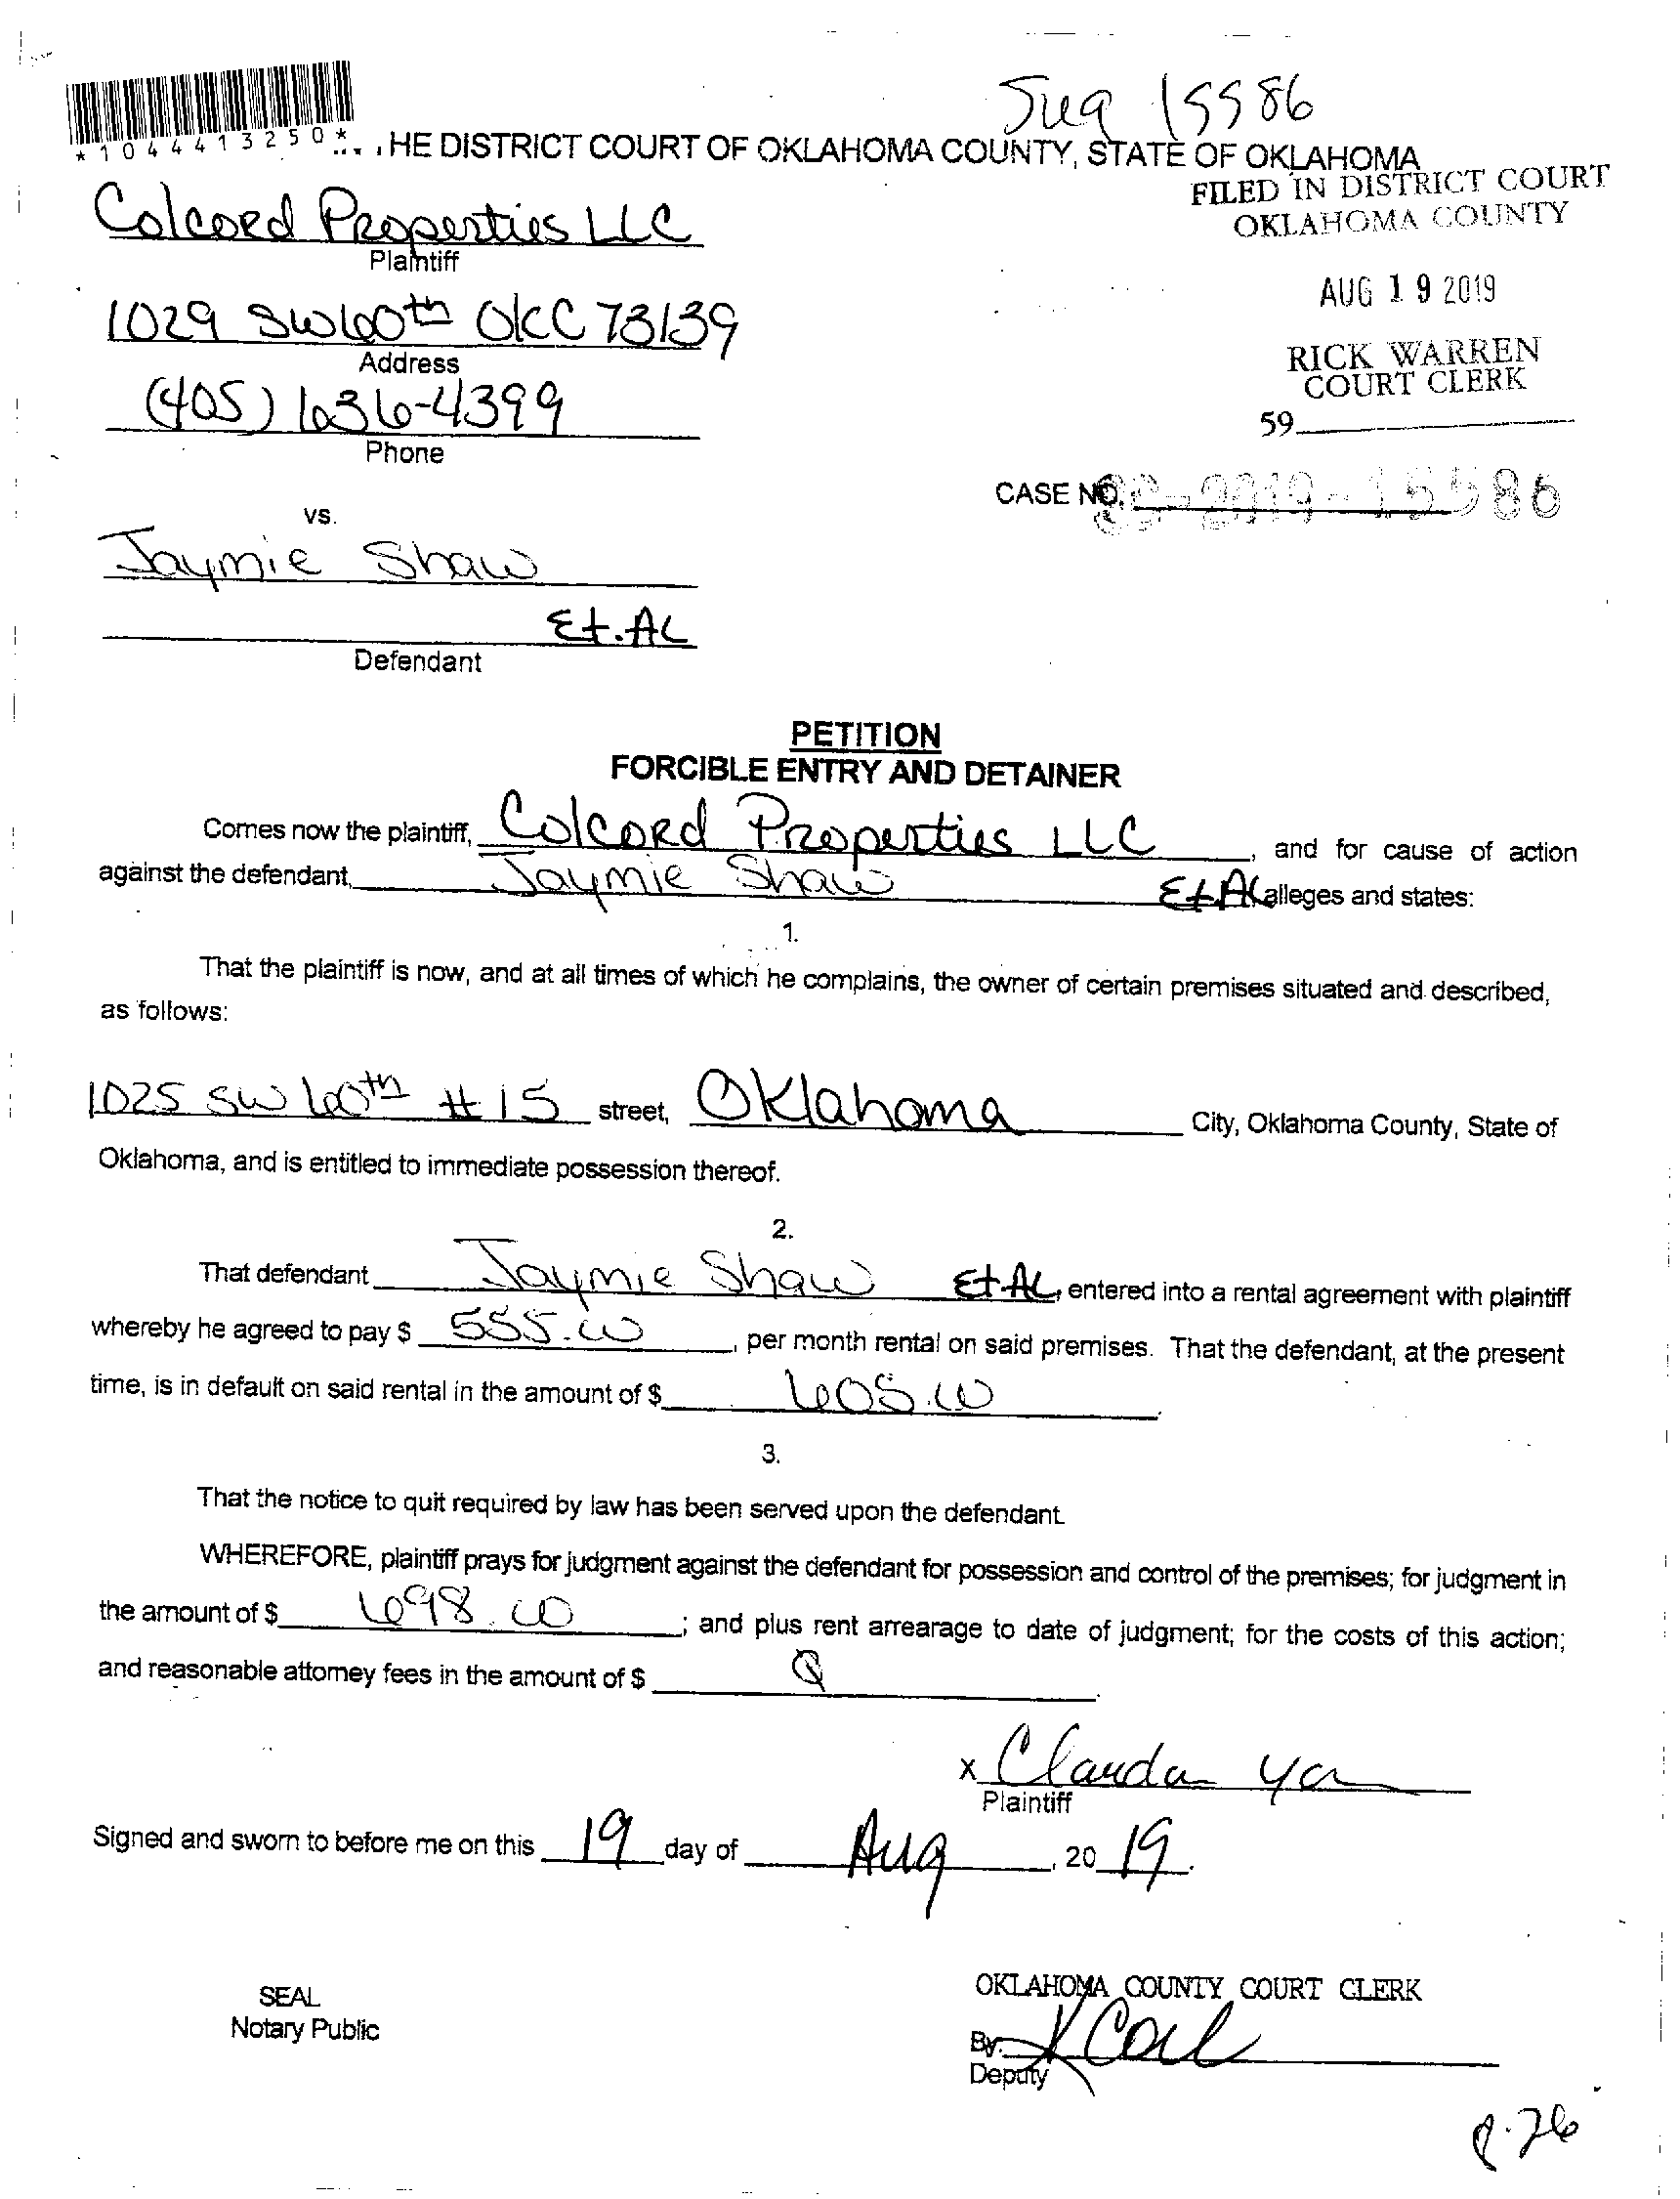 15586
*1044413250*
HE DISTRICT COURT OF OKLAHOMA COUNTY, STATE OF OKLAHOMA
FILED IN DISTRICT COURT
OKLAHOMA COUNTY
Colcord Properties LLC
Plaintiff
AUG 19 2019
1029 SW 60th OKC 73139
Address
RICK WARREN
COURT CLERK
(405) 636-4399
Phone
59
CASE NO. SC-2019-15586
vs.
Jaymie Shaw
Et. AL
Defendant
PETITION
FORCIBLE ENTRY AND DETAINER
Comes now the plaintiff, Colcord Properties LLC, and for cause of action
against the defendant, Jaymie Shaw Et. Al alleges and states:
1.
That the plaintiff is now, and at all times of which he complains, the owner of certain premises situated and described,
as follows:
1025 SW 60th #15 street, Oklahoma City, Oklahoma County, State of
Oklahoma, and is entitled to immediate possession thereof.
2.
That defendant Jaymie Shaw Et. AL, entered into a rental agreement with plaintiff
whereby he agreed to pay $ 555.00, per month rental on said premises. That the defendant, at the present
time, is in default on said rental in the amount of $ 605.00.
3.
That the notice to quit required by law has been served upon the defendant.
WHEREFORE, plaintiff prays for judgment against the defendant for possession and control of the premises; for judgment in
the amount of $ 698.00; and plus rent arrearage to date of judgment; for the costs of this action;
and reasonable attorney fees in the amount of $
x Clauda
Plaintiff
Signed and sworn to before me on this 19 day of Aug, 2019.
SEAL
Notary Public
OKLAHOMA COUNTY COURT CLERK
By:
Deputy
8.26